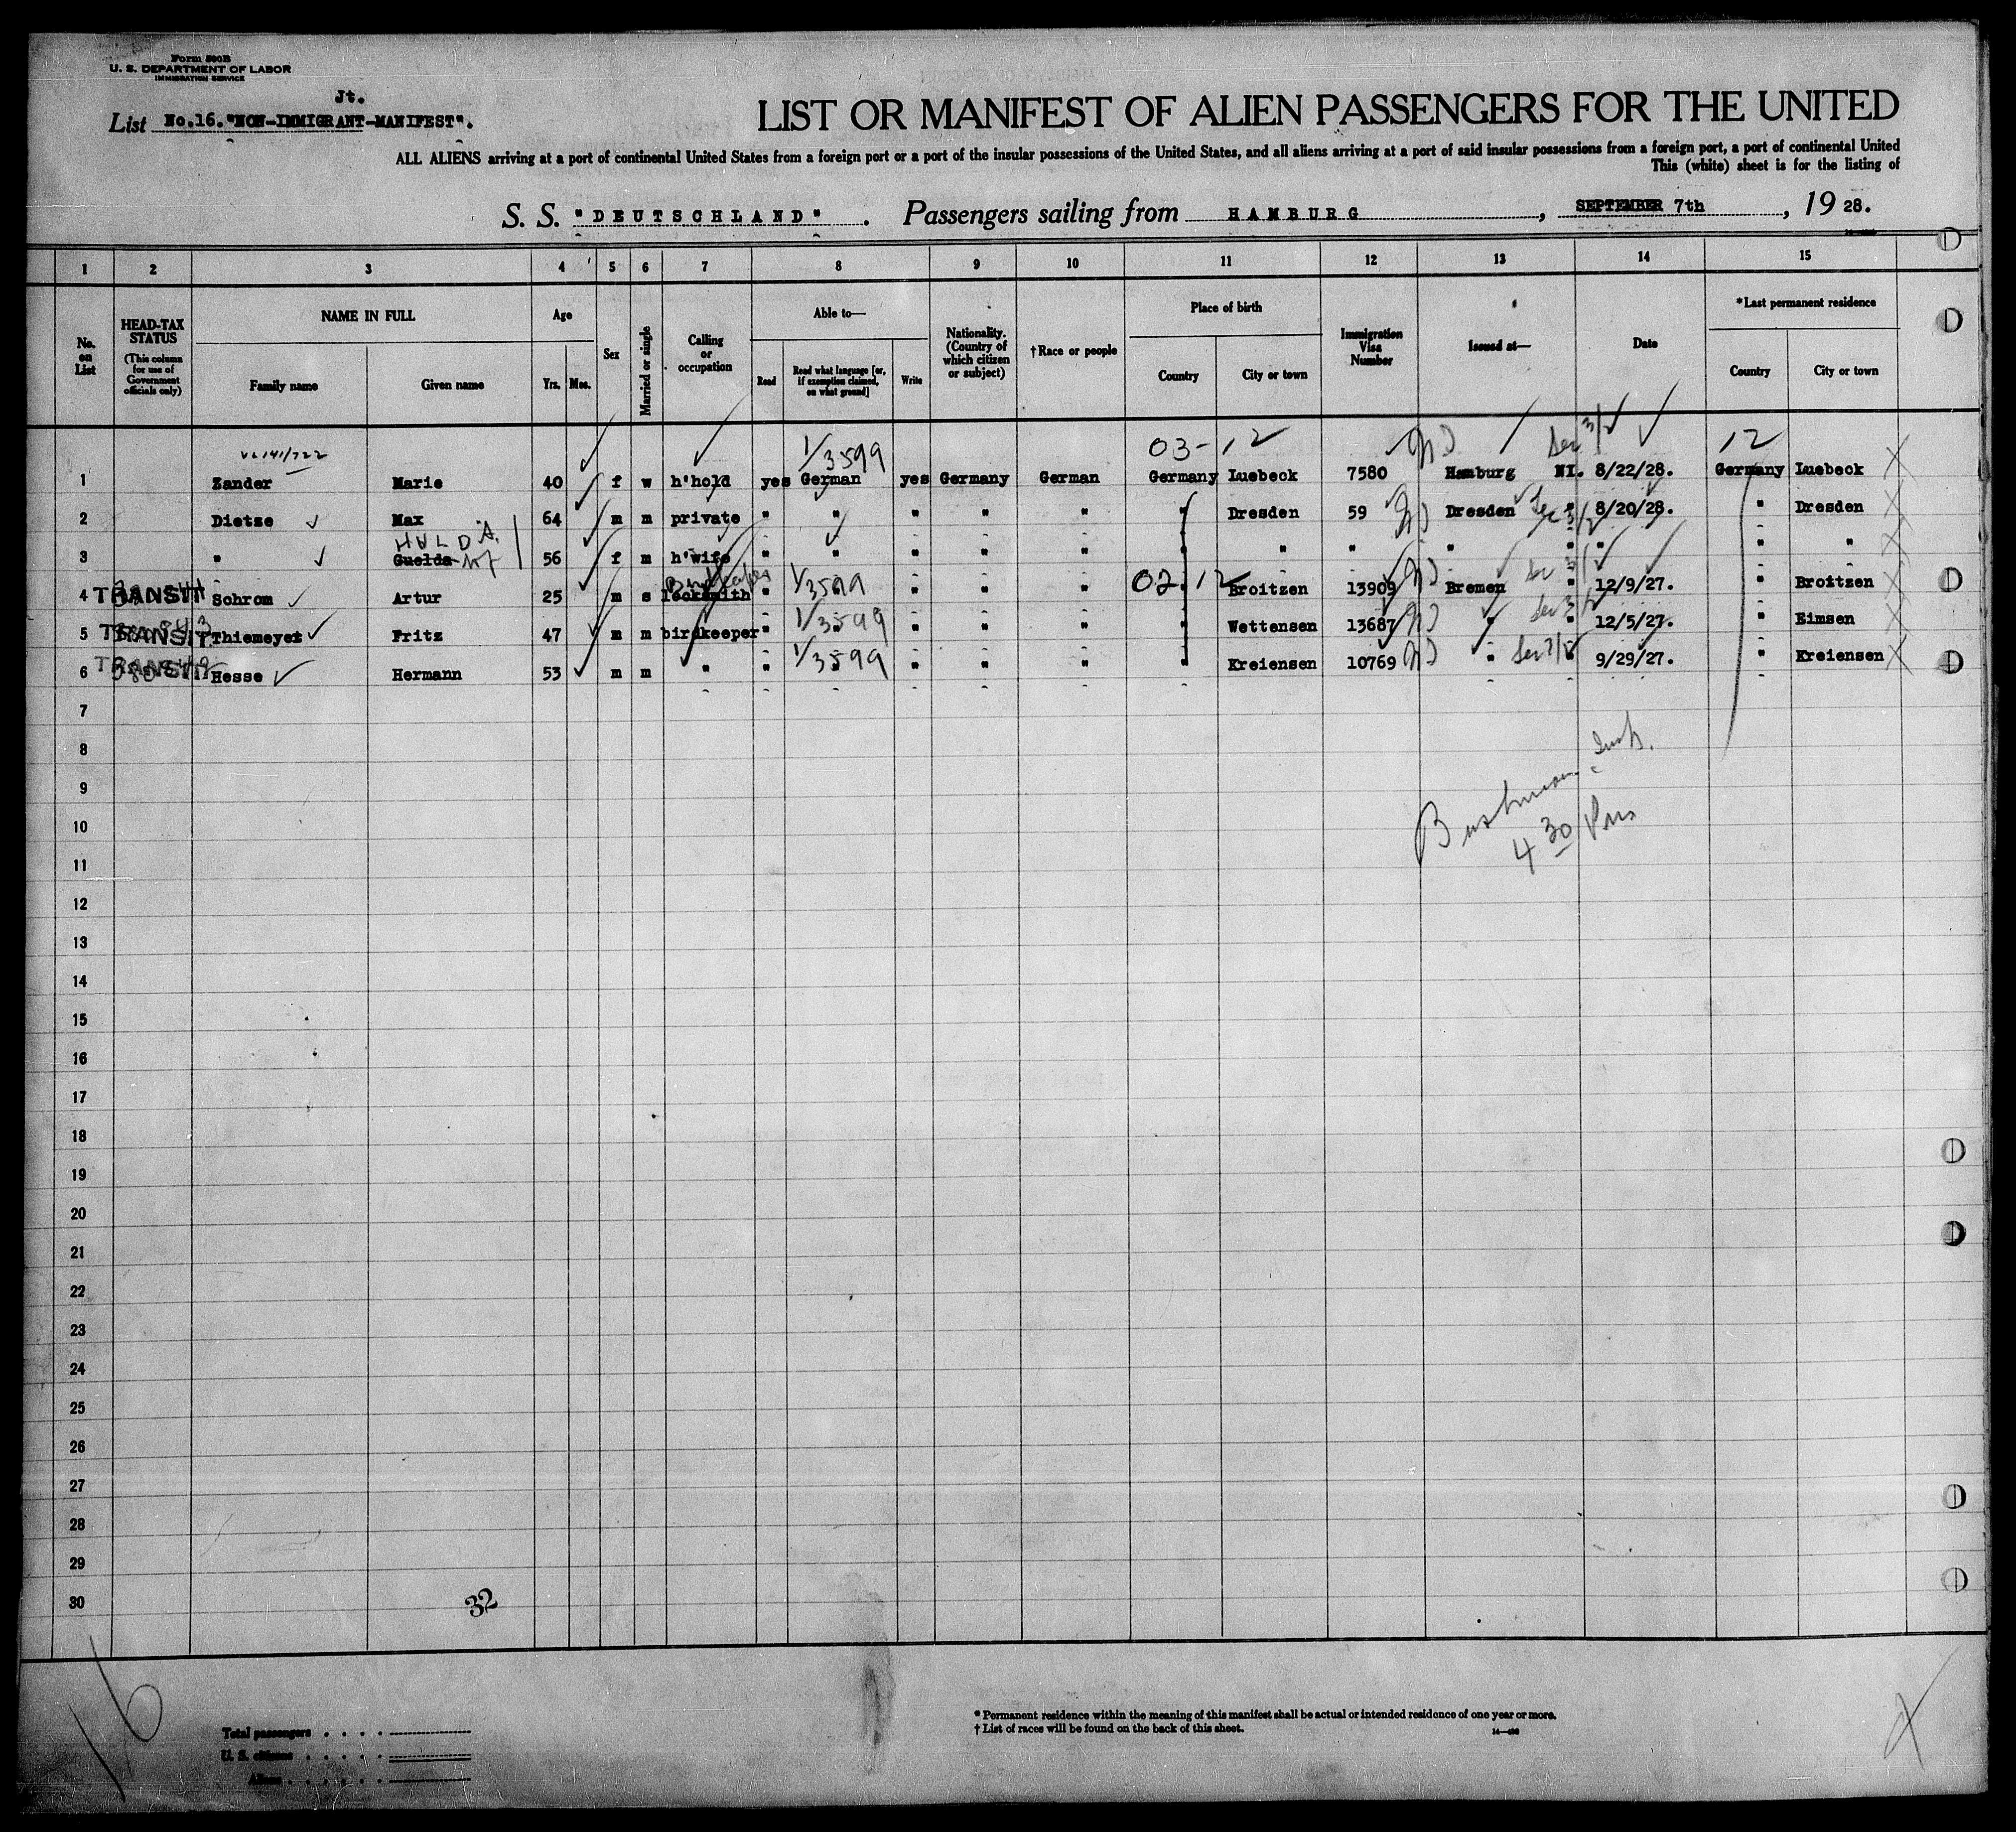 Form 500B
U. S. DEPARTMENT OF LABOR
IMMIGRATION SERVICE
Jt.
List No.16. "NON-IMMIGRANT-MANIFEST".
LIST OR MANIFEST OF ALIEN PASSENGERS FOR THE UNITED
ALL ALIENS arriving at a port of continental United States from a foreign port or a port of the insular possessions of the United States, and all aliens arriving at a port of said insular possessions from a foreign port, a port of continental United
This (white) sheet is for the listing of
S. S. "DEUTSCHLAND". Passengers sailing from HAMBURG, SEPTEMBER 7th, 1928.
1 2 3 4 5 6 7 8 9 10 11 12 13 14 15
No. on List
HEAD-TAX STATUS (This column for use of Government officials only)
NAME IN FULL
Family name
Given name
Age
Yrs. Mos.
Sex
Married or single
Calling or occupation
Able to—
Read
Read what language [or, if exemption claimed, on what ground]
Write
Nationality. (Country of which citizen or subject)
†Race or people
Place of birth
Country
City or town
Immigration Visa Number
Issued at—
Date
*Last permanent residence
Country
City or town
1/3599 03-12 12
1 Zander Marie 40 f w h'hold yes German yes Germany German Germany Luebeck 7580 Hamburg NI. 8/22/28. Germany Luebeck
2 Dietze Max 64 m m private " " " " " " Dresden 59 Dresden " 8/20/28. " Dresden
HULDA
3 " Guelda 56 f m h'wife " " " " " " " " " " " " "
Birdkeeper 1/3599 02.12
4 TRANSIT Schrom Artur 25 m s locksmith " " " " " " Broitzen 13909 Bremen " 12/9/27. " Broitzen
1/3599
5 TRANSIT Thiemeyer Fritz 47 m m birdkeeper " " " " " " Wettensen 13687 " " 12/5/27. " Eimsen
1/3599
6 TRANSIT Hesse Hermann 53 m m " " " " " " " Kreiensen 10769 " " 9/29/27. " Kreiensen
7
8
9
10
11
12
13
14
15
16
17
18
19
20
21
22
23
24
25
26
27
28
29
30
4 30 Pm
32
16
Total passengers
U. S. citizens
Aliens
* Permanent residence within the meaning of this manifest shall be actual or intended residence of one year or more.
† List of races will be found on the back of this sheet.